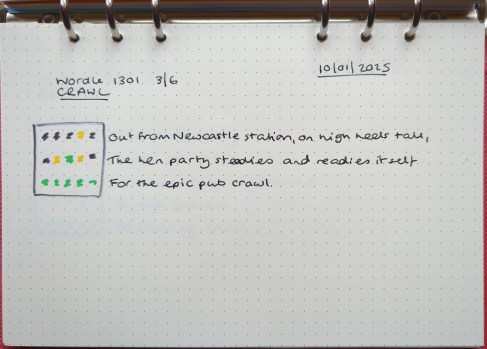 10/01/2025
Wordle 1301 3/6
CRAWL
Out from Newcastle station, on high heels tall,
The hen party steadies and readies itself
For the epic pub crawl.